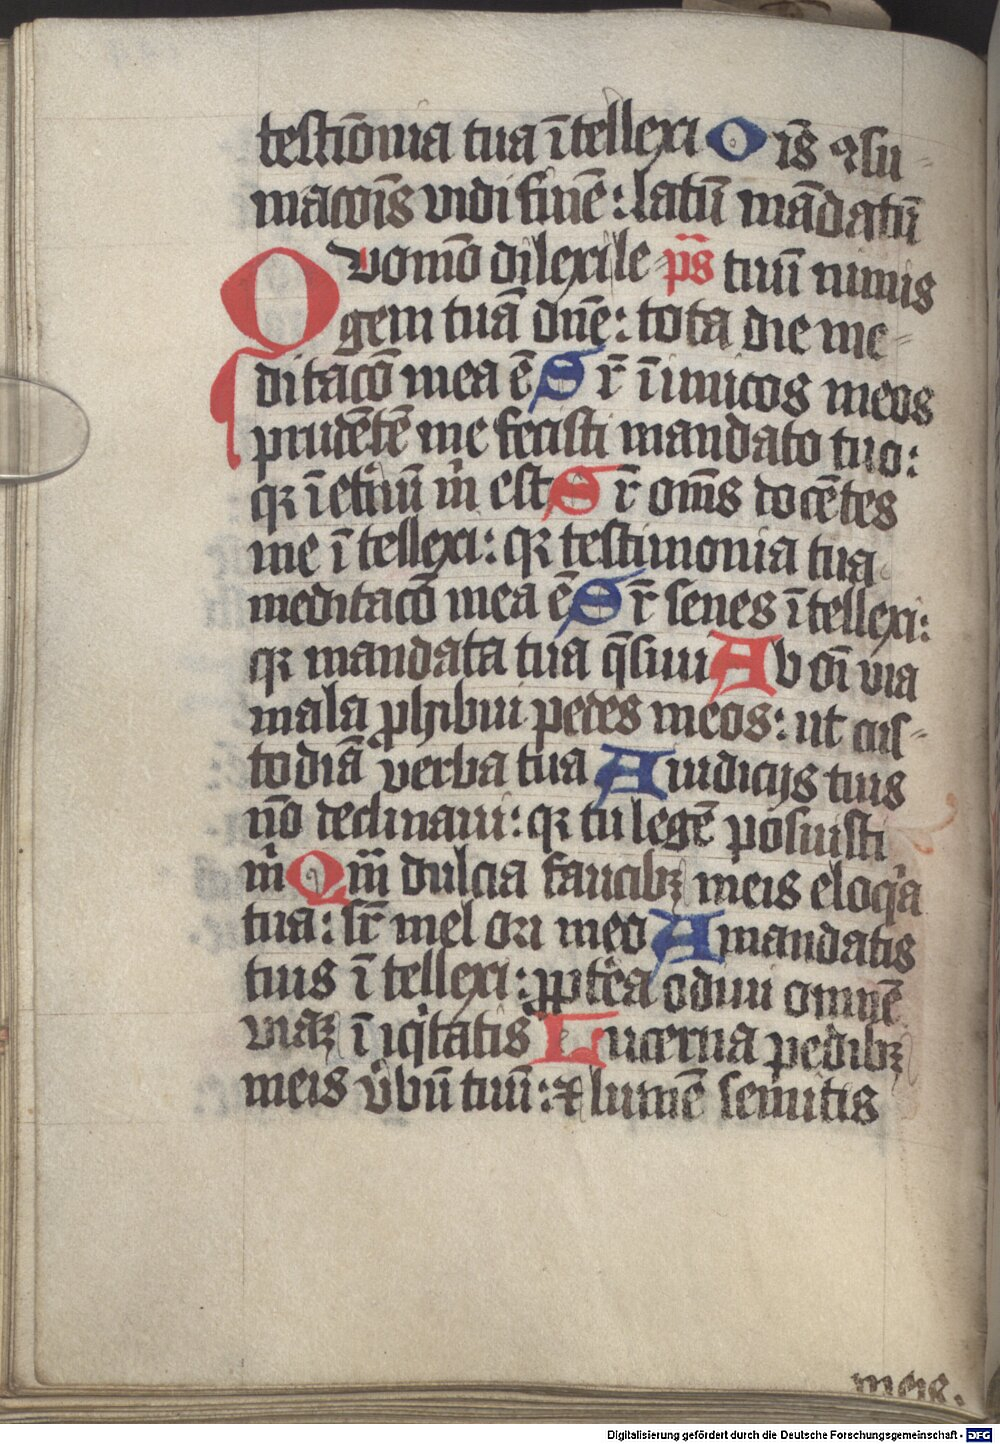 testiōnia tua ītellexi Oīs ꝯsu-
macōīs vidi finē: latū mādatū
Quomō dilexi le ps̄ tuū nimis
gem tuā dn̄e: tota die me-
ditacō mea ē Sr̄ īimicos meos
prudētē me fecisti mandato tuo:
qꝛ ī etnū m̄ est Sr̄ om̄s docētes
me ītellexi: qꝛ testimonia tua
meditacō mea ē Sr̄ senes ītellexi:
qꝛ mandata tua q̄siui Ab oī via
mala ꝓhibui pedes meos: ut cus-
todiā verba tua A iudicijs tuis
nō declinaui: qꝛ tu legē posuisti
m̄ Qm̄ dulcia faucibꝫ meis eloqͣa
tua: sr̄ mel ori meo A mandatis
tuis ītellexi: ꝓptea odiui omnē
viaꝫ īiqͥtatis Lucerna pedibꝫ
meis v̄bū tuū: ⁊ lumē semitis
meis.
Digitalisierung gefördert durch die Deutsche Forschungsgemeinschaft - DFG